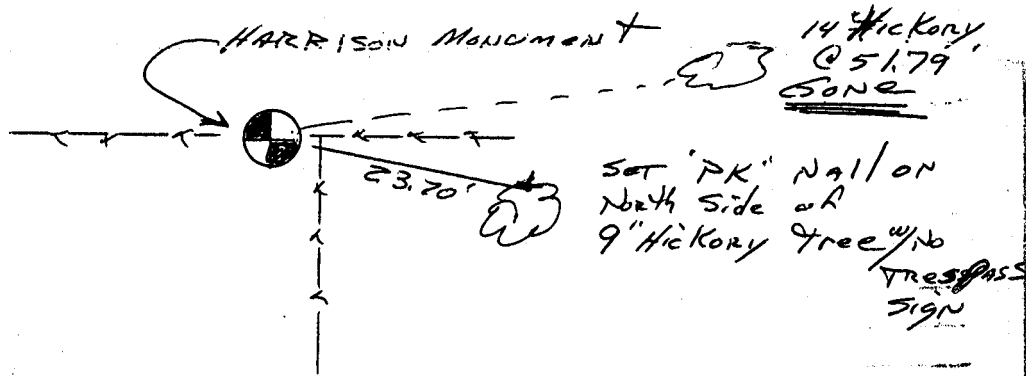 HARRISON MONUMENT
14" Hickory
@ 51.79'
GONE
23.70'
SET "PK" NAIl ON
North Side of
9" Hickory Tree w/No
TRESPASS
SIGN